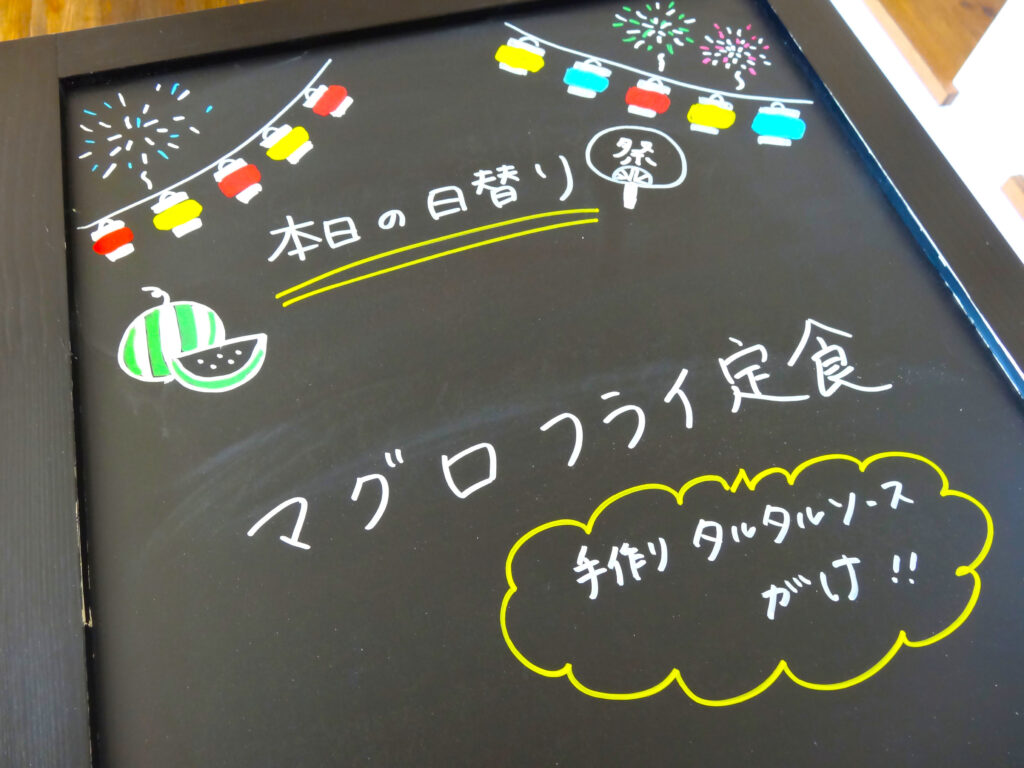 本日の日替り
祭
マグロフライ定食
手作りタルタルソース
がけ!!